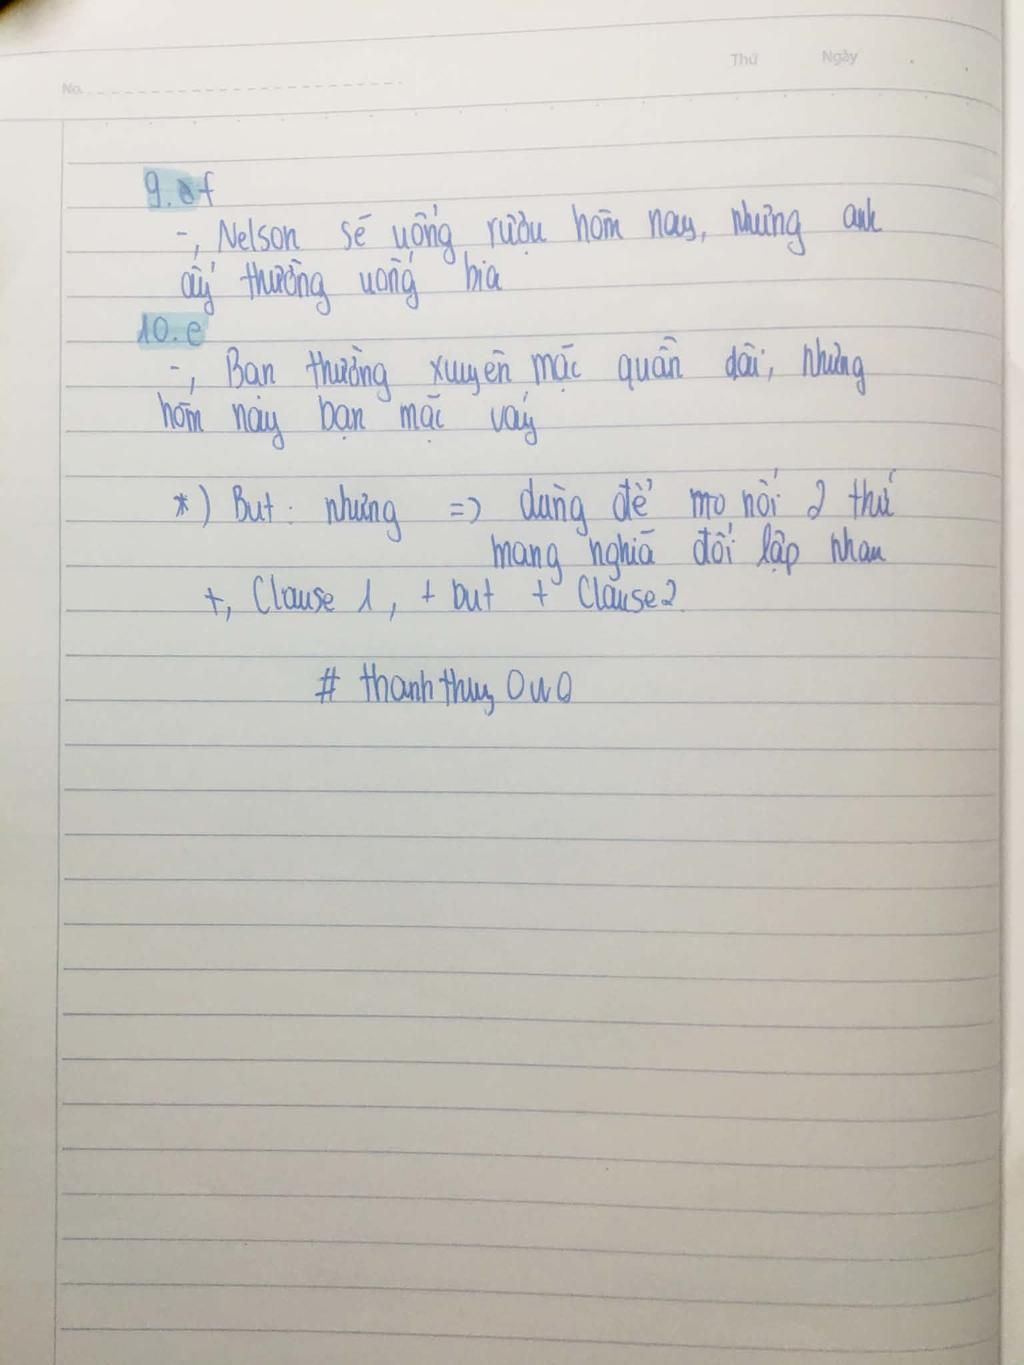 Thứ Ngày
No.
9. f
-, Nelson sẽ uống rượu hôm nay, nhưng anh
ấy thường uống bia
10. e
-, Bạn thường xuyên mặc quần dài, nhưng
hôm này bạn mặc váy
*) But : nhưng => dùng để mo nối 2 thứ
mang nghĩa đối lập nhau
+, Clause 1, + but + Clause 2
# thanhthuy OwO